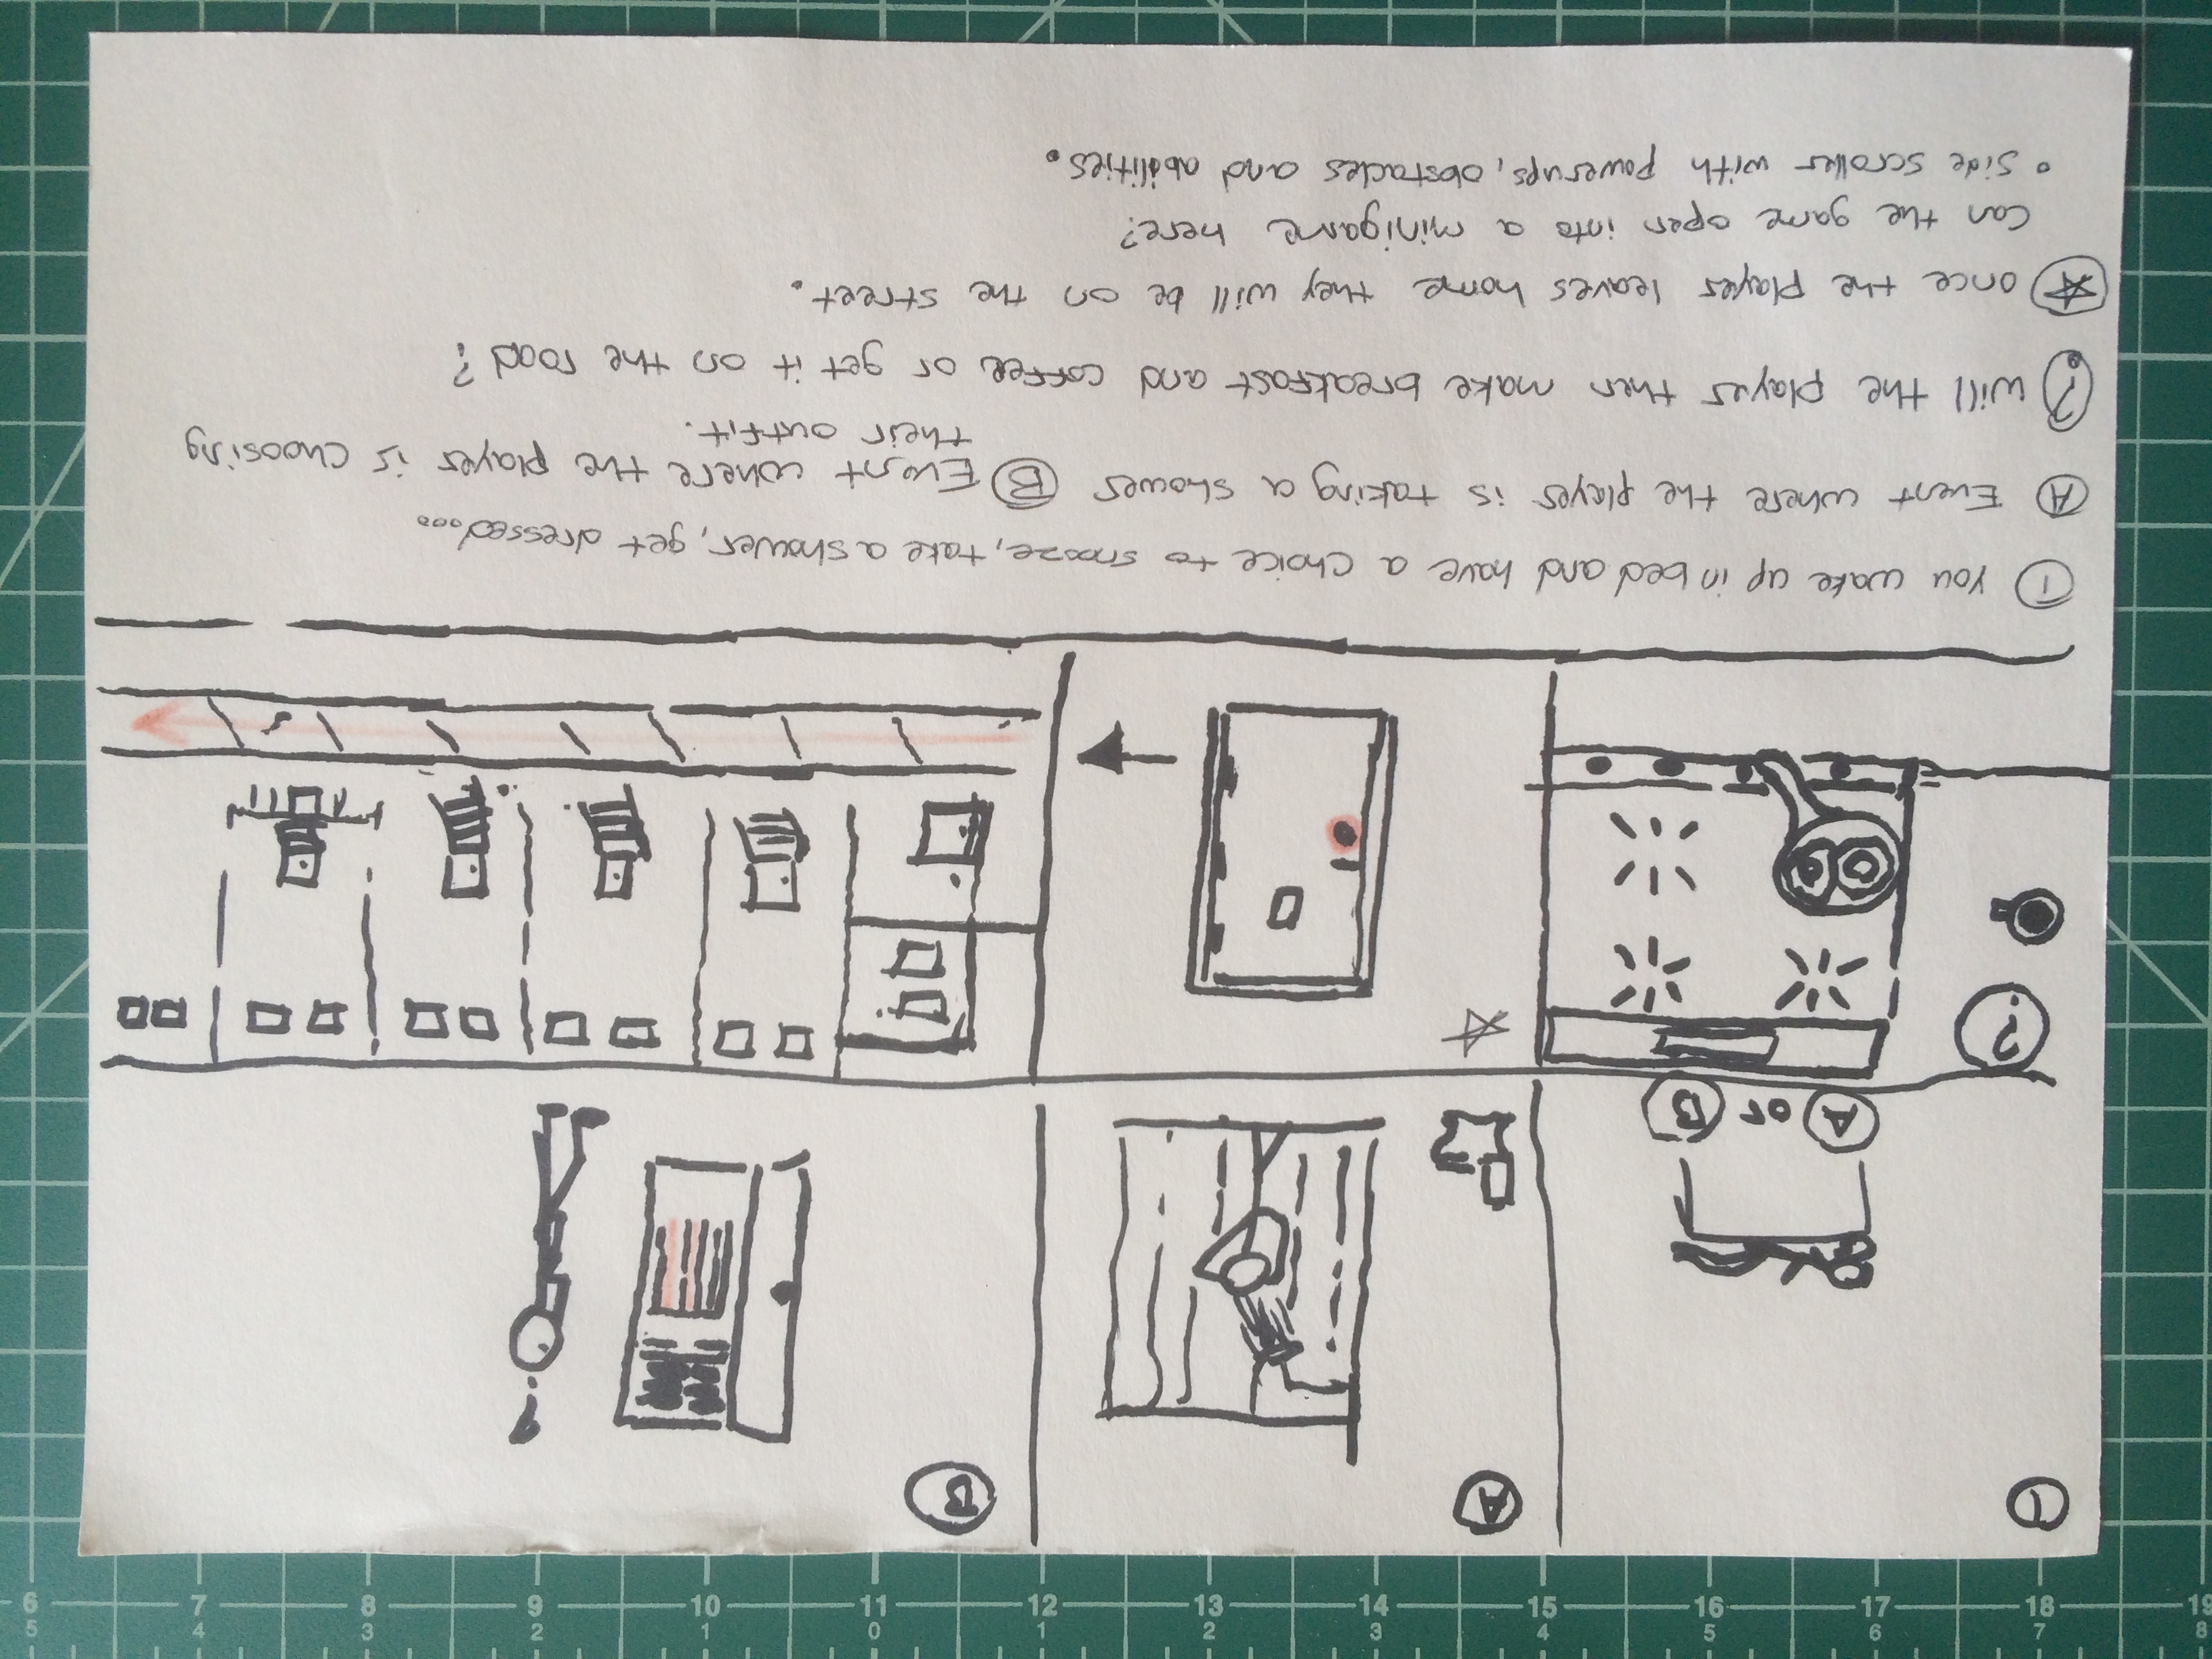 8 7 6 5 4 3 2 1 0 1 2 3 4 5
19 18 17 16 15 14 13 12 11 10 9 8 7 6
1
A
B
?
A or B
?
1 You wake up in bed and have a choice to snooze, take a shower, get dressed...
A Event where the player is taking a shower
B Event where the player is choosing
their outfit.
? will the player then make breakfast and coffee or get it on the road?
☆ once the player leaves home they will be on the street.
Can the game open into a minigame here?
• Side scroller with powerups, obstacles and abilities.